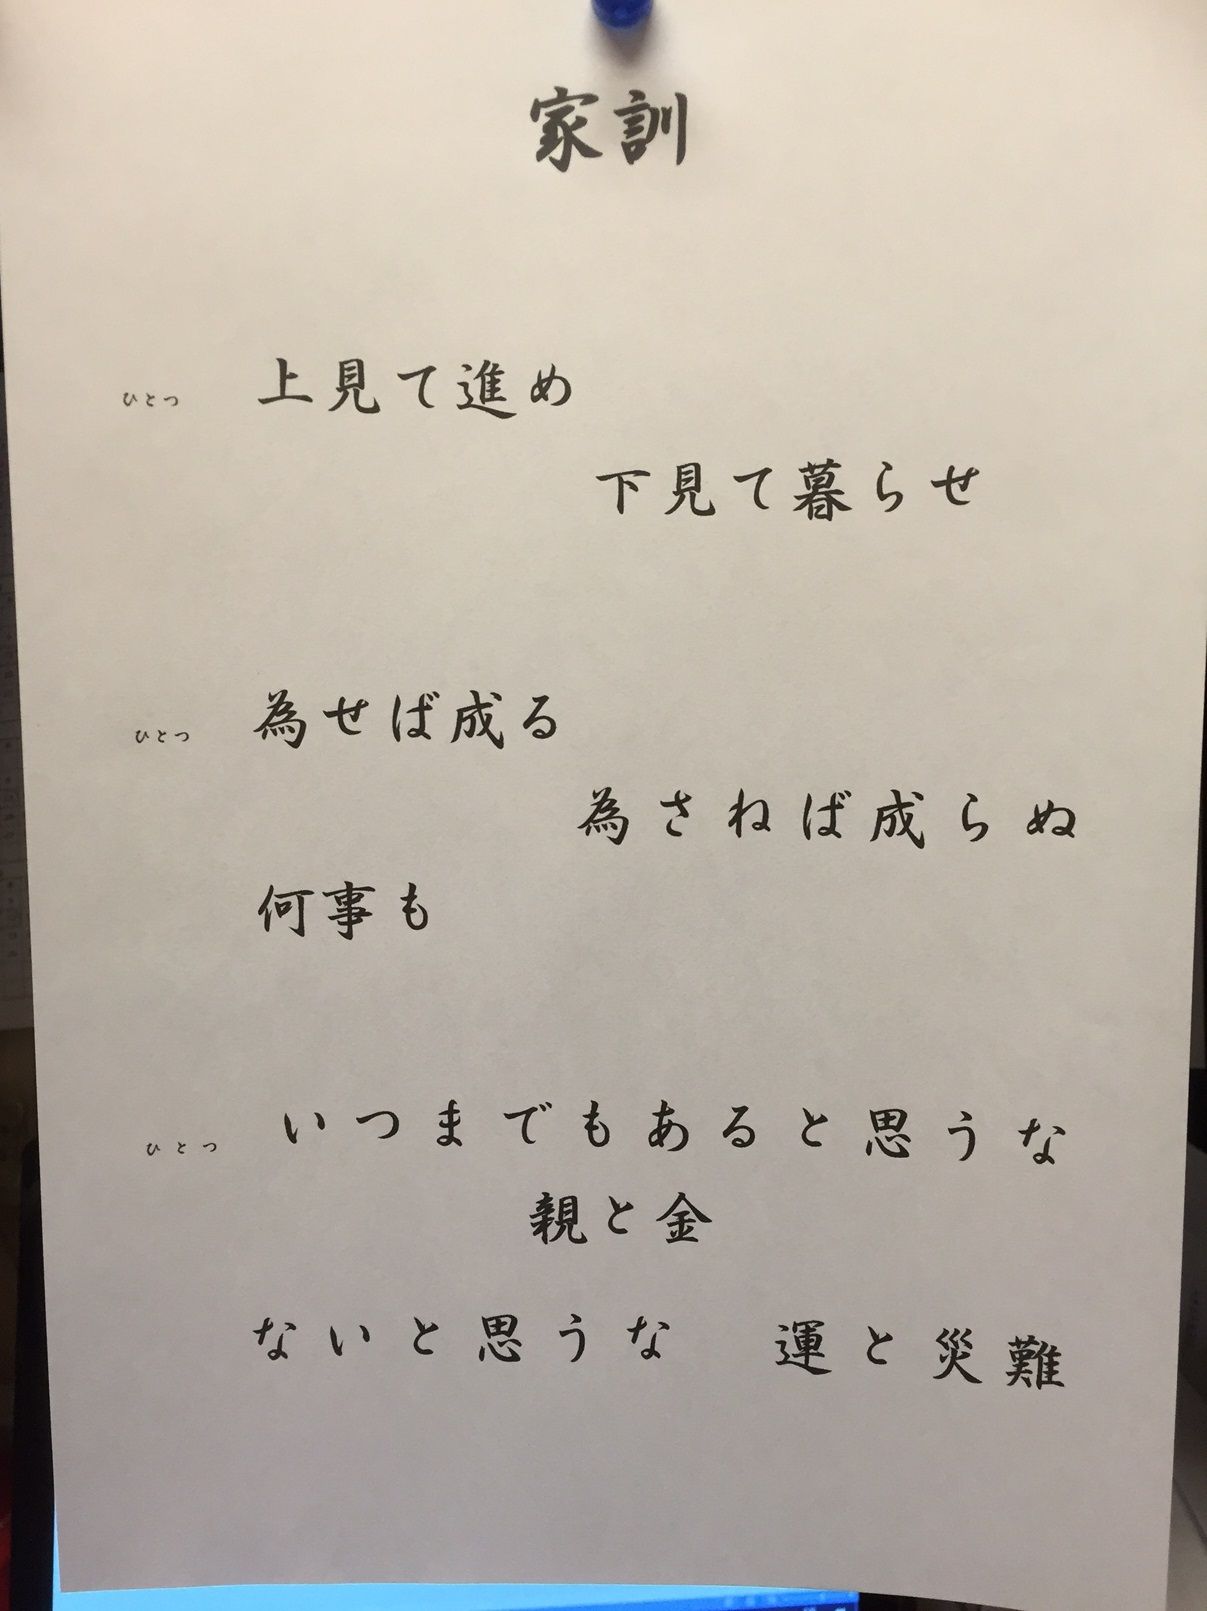 家訓
ひとつ 上見て進め
下見て暮らせ
ひとつ 為せば成る
為さねば成らぬ
何事も
ひとつ いつまでもあると思うな
親と金
ないと思うな 運と災難